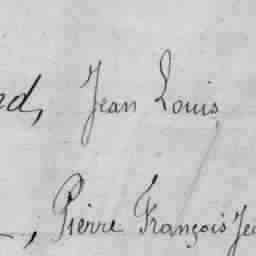 ed, Jean Louis
, Pierre François Je